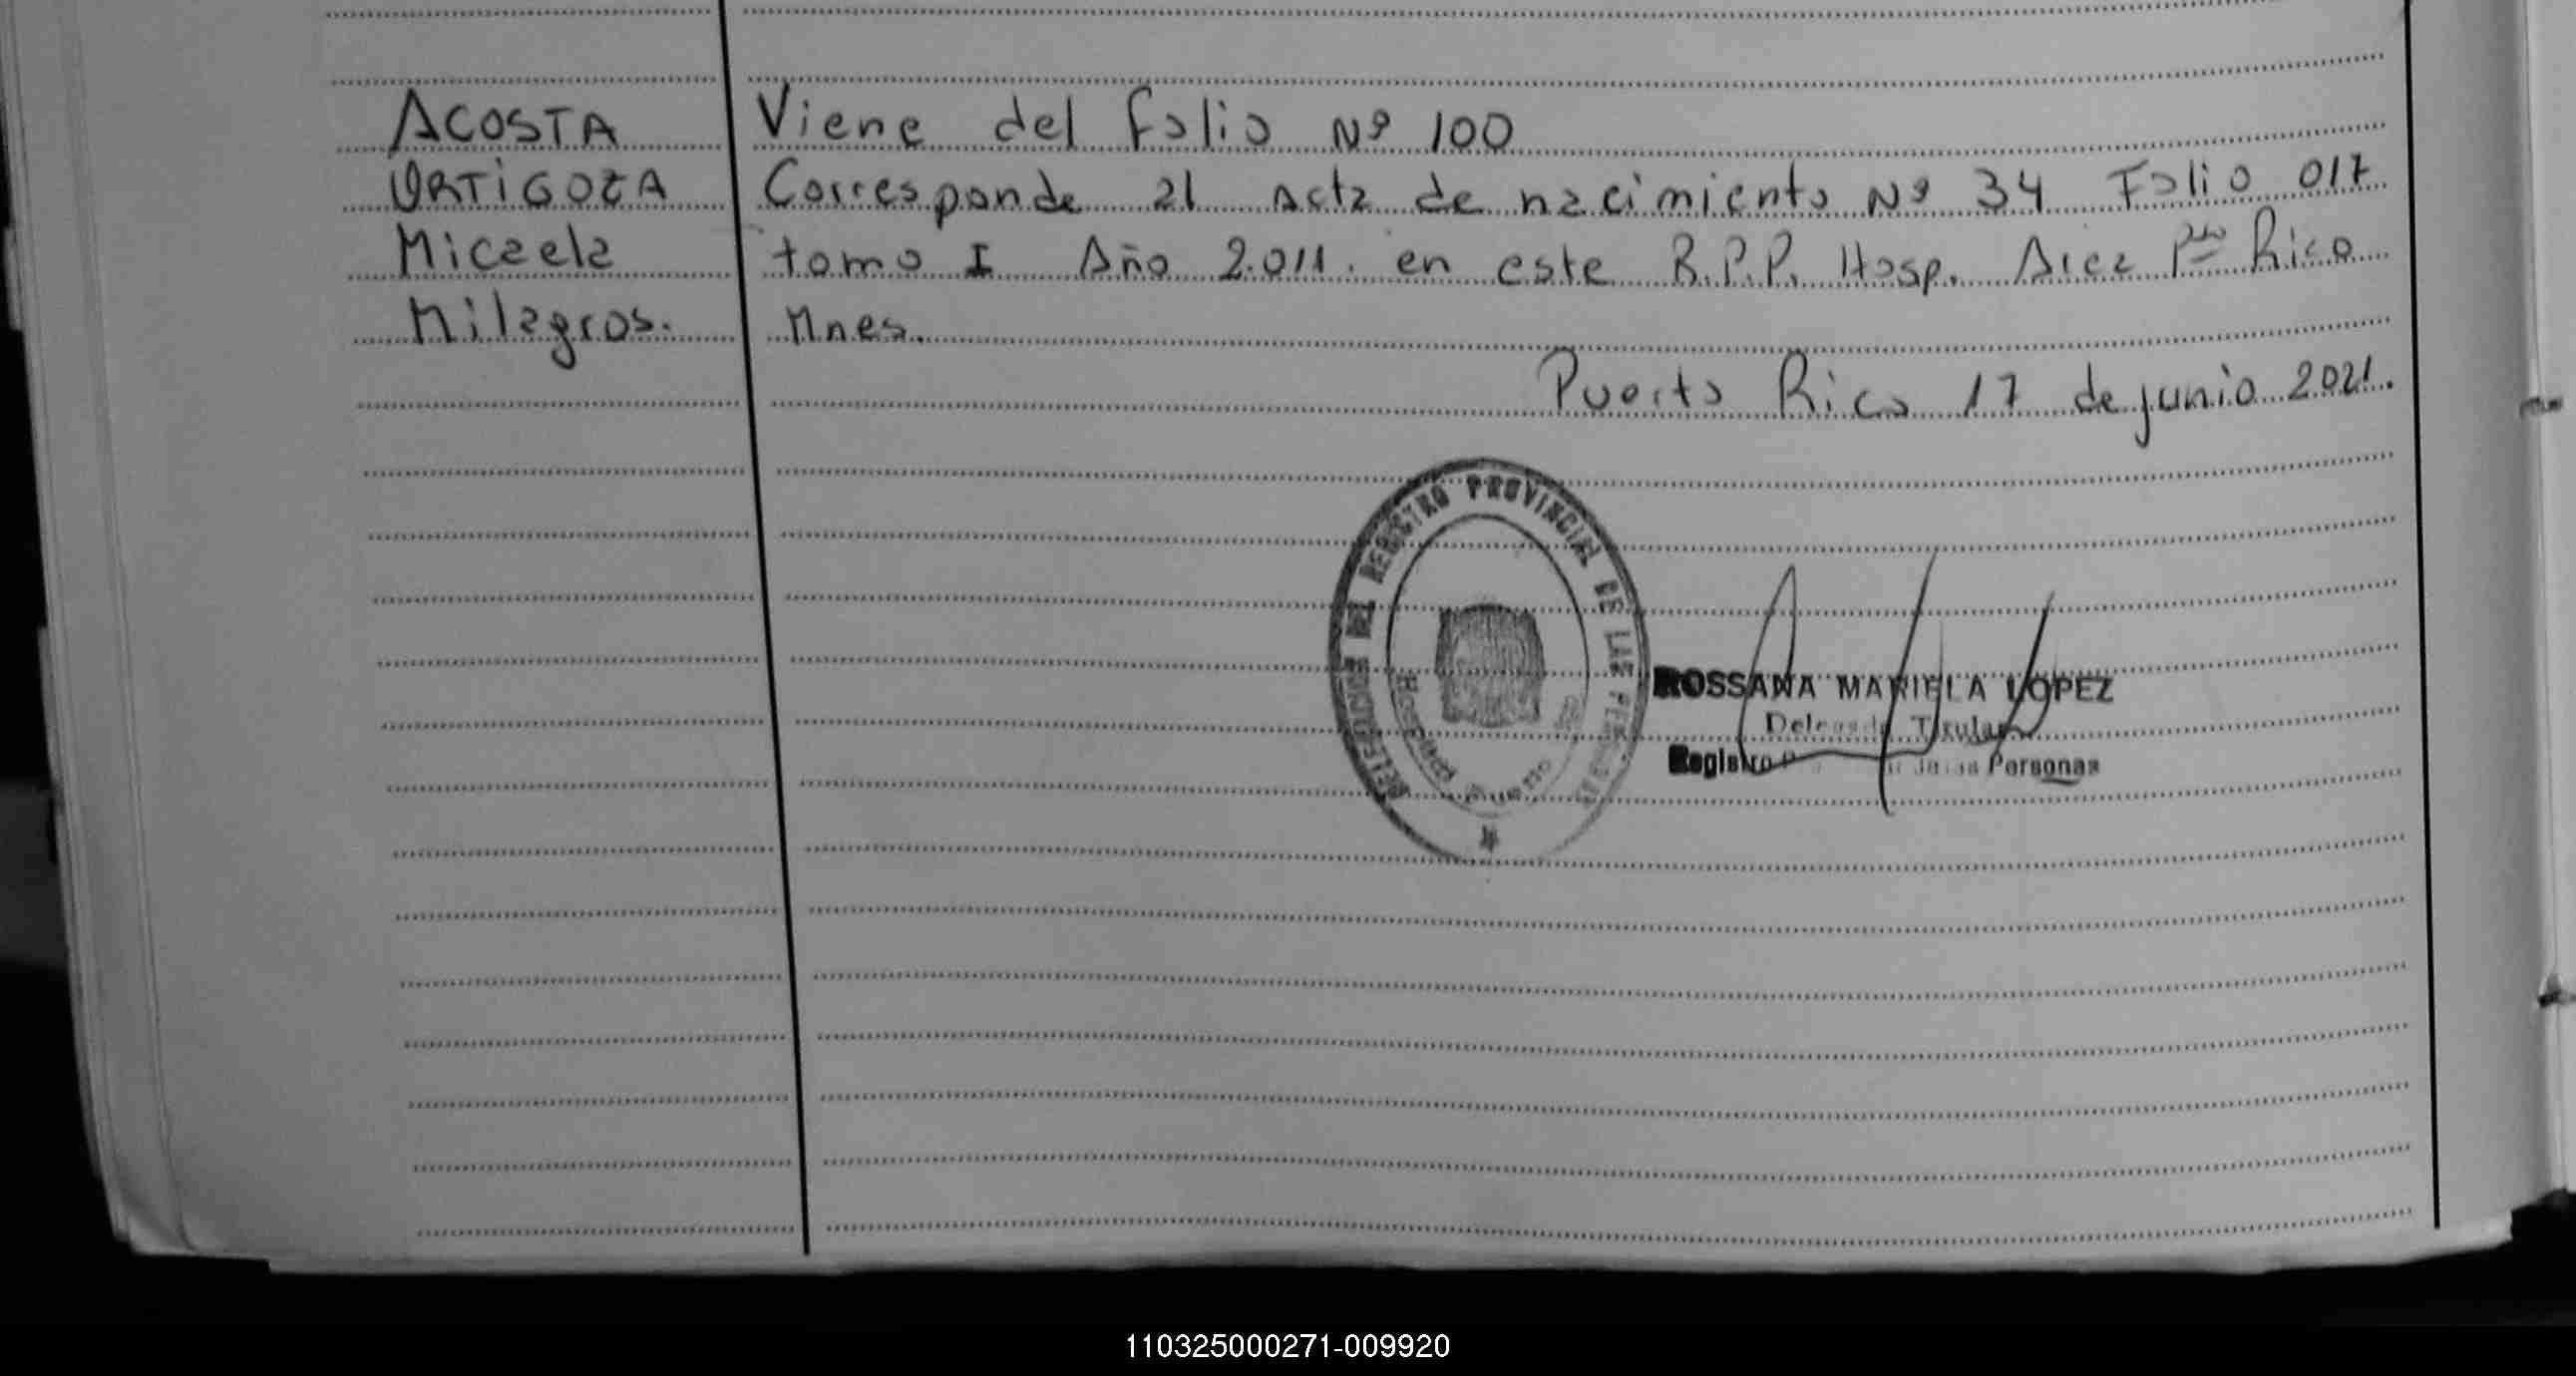 ACOSTA Viene del folio Nº 100
ORTIGOZA Corresponde al acta de nacimiento Nº 34 Folio 017
Micaela tomo I Año 2.011. en este R.P.P. Hosp. Area Pto Rico
Milagros. Mnes.
Puerto Rico 17 de junio 2021.
REGISTRO PROVINCIAL DE LAS
ROSSANA MARIELA LOPEZ
Titular
Registro Personas
110325000271-009920